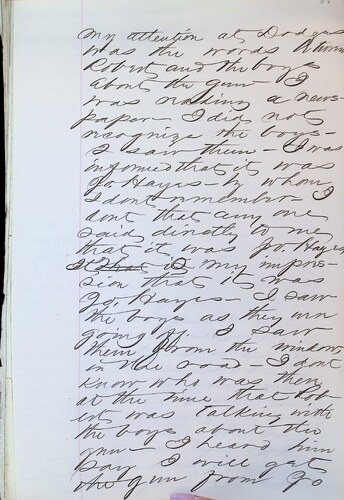 my attention at Dodges
was the words
Robert and the boys
about the gun - I
was reading a news-
paper - I did not
recognize the boys -
I saw them - I was
informed that it was
Jo. Hayes - by whom
I dont remember - I
dont that any one
said directly to me
that it was Jo. Hayes
it is my impres-
sion that it was
Jo. Hayes - I saw
the boys as they were
going off. I saw
them from the window
in the road - I dont
know who was there
at the time that Rob-
ert was talking with
the boys about the
gun - I heard him
say I will get
the gun from Jo